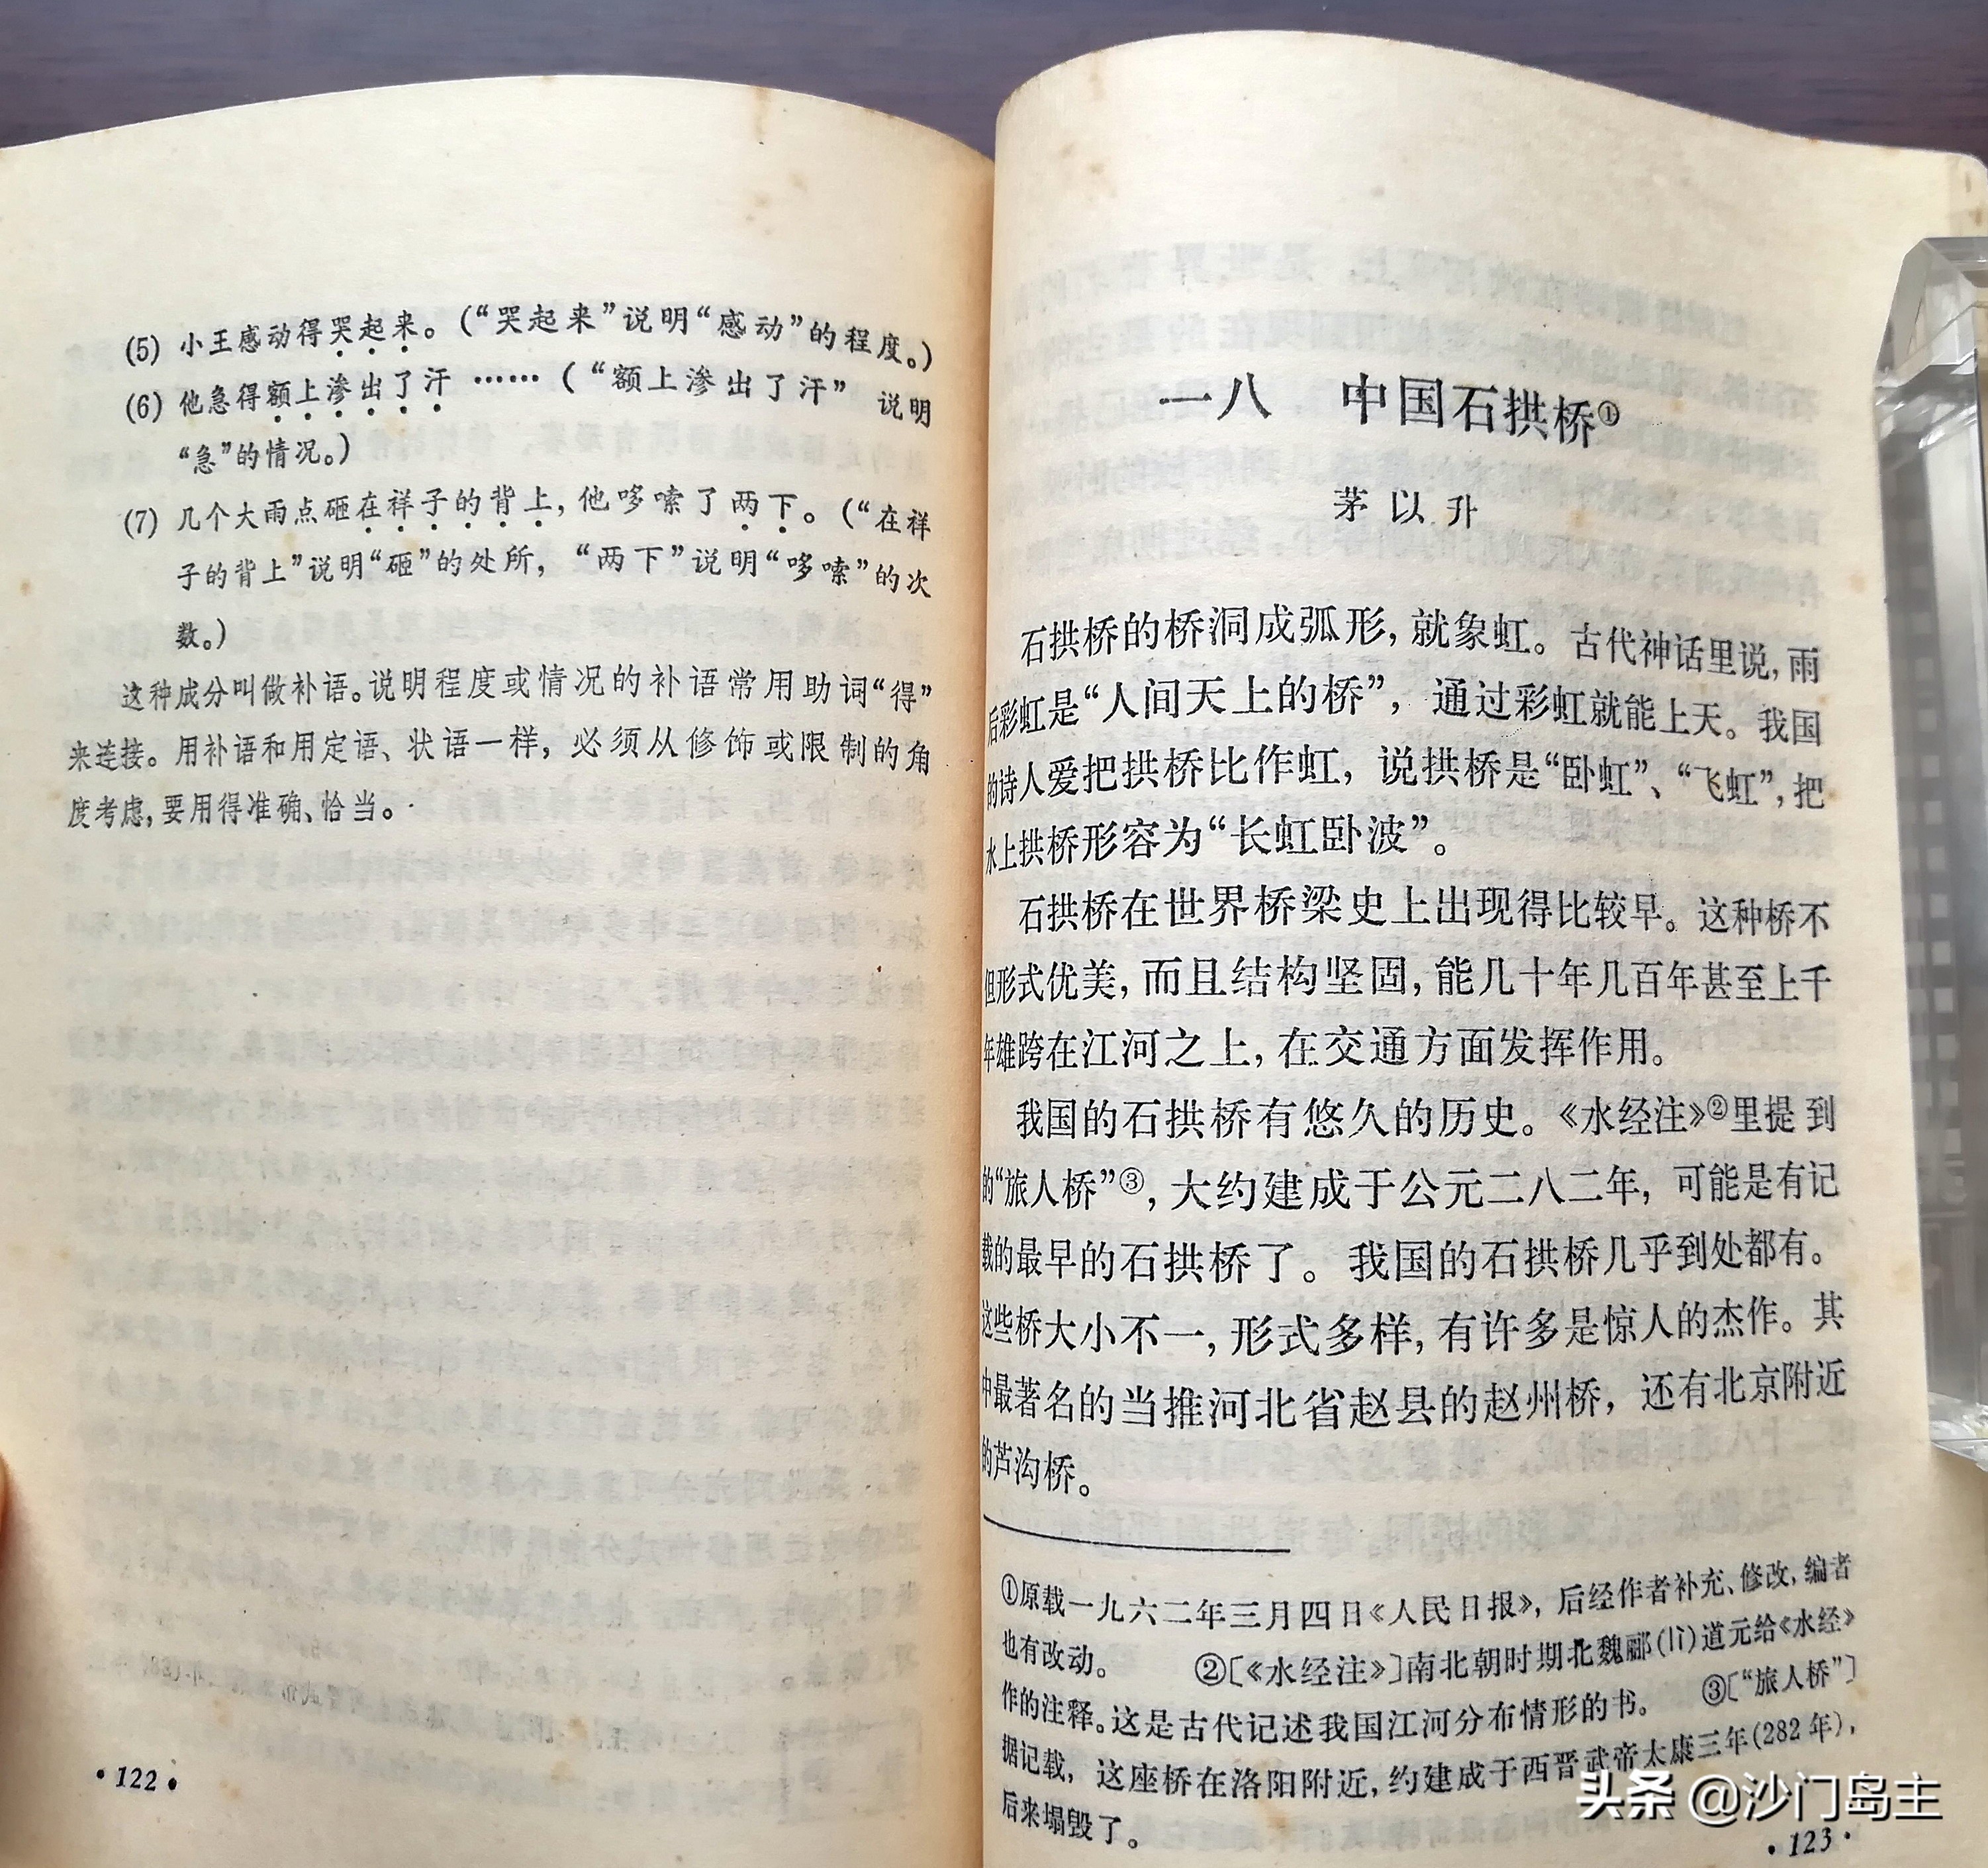 (5) 小王感动得哭起来。(“哭起来”说明“感动”的程度。)
(6) 他急得额上渗出了汗……(“额上渗出了汗” 说明
“急”的情况。)
(7) 几个大雨点砸在祥子的背上,他哆嗦了两下。(“在祥
子的背上”说明“砸”的处所,“两下”说明“哆嗦”的次
数。)
这种成分叫做补语。说明程度或情况的补语常用助词“得”
来连接。用补语和用定语、状语一样,必须从修饰或限制的角
度考虑,要用得准确、恰当。
·122·
一八 中国石拱桥①
茅以升
石拱桥的桥洞成弧形,就象虹。古代神话里说,雨
后彩虹是“人间天上的桥”,通过彩虹就能上天。我国
的诗人爱把拱桥比作虹,说拱桥是“卧虹”、“飞虹”,把
水上拱桥形容为“长虹卧波”。
石拱桥在世界桥梁史上出现得比较早。这种桥不
但形式优美,而且结构坚固,能几十年几百年甚至上千
年雄跨在江河之上,在交通方面发挥作用。
我国的石拱桥有悠久的历史。《水经注》②里提到
的“旅人桥”③,大约建成于公元二八二年,可能是有记
载的最早的石拱桥了。我国的石拱桥几乎到处都有。
这些桥大小不一,形式多样,有许多是惊人的杰作。其
中最著名的当推河北省赵县的赵州桥,还有北京附近
的芦沟桥。
①原载一九六二年三月四日《人民日报》,后经作者补充、修改,编者
也有改动。 ②〔《水经注》〕南北朝时期北魏郦(lì)道元给《水经》
作的注释。这是古代记述我国江河分布情形的书。 ③〔“旅人桥”〕
据记载,这座桥在洛阳附近,约建成于西晋武帝太康三年(282年),
后来塌毁了。
头条 @沙门岛主
·123·